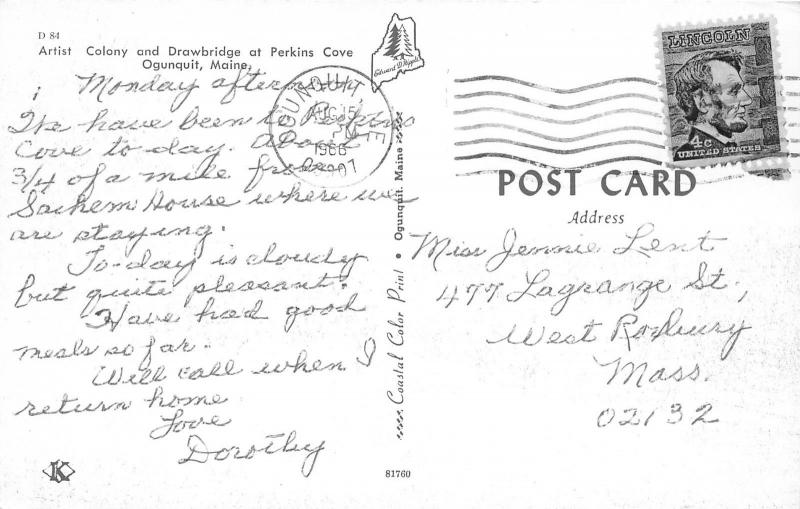 D 84
Artist Colony and Drawbridge at Perkins Cove
Ogunquit, Maine
Monday afternoon
We have been to Perkins
Cove to-day. About
3/4 of a mile from
Sachem House where we
are staying.
To-day is cloudy
but quite pleasant.
Have had good
meals so far.
Will call when I
return home
Love
Dorothy
K
OGUNQUIT
AUG 15
PM
1966
ME
Coastal Color Print • Ogunquit, Maine
81760
LINCOLN
4c
UNITED STATES
POST CARD
Address
Miss Jennie Lent
477 Lagrange St,
West Roxbury
Mass.
02132